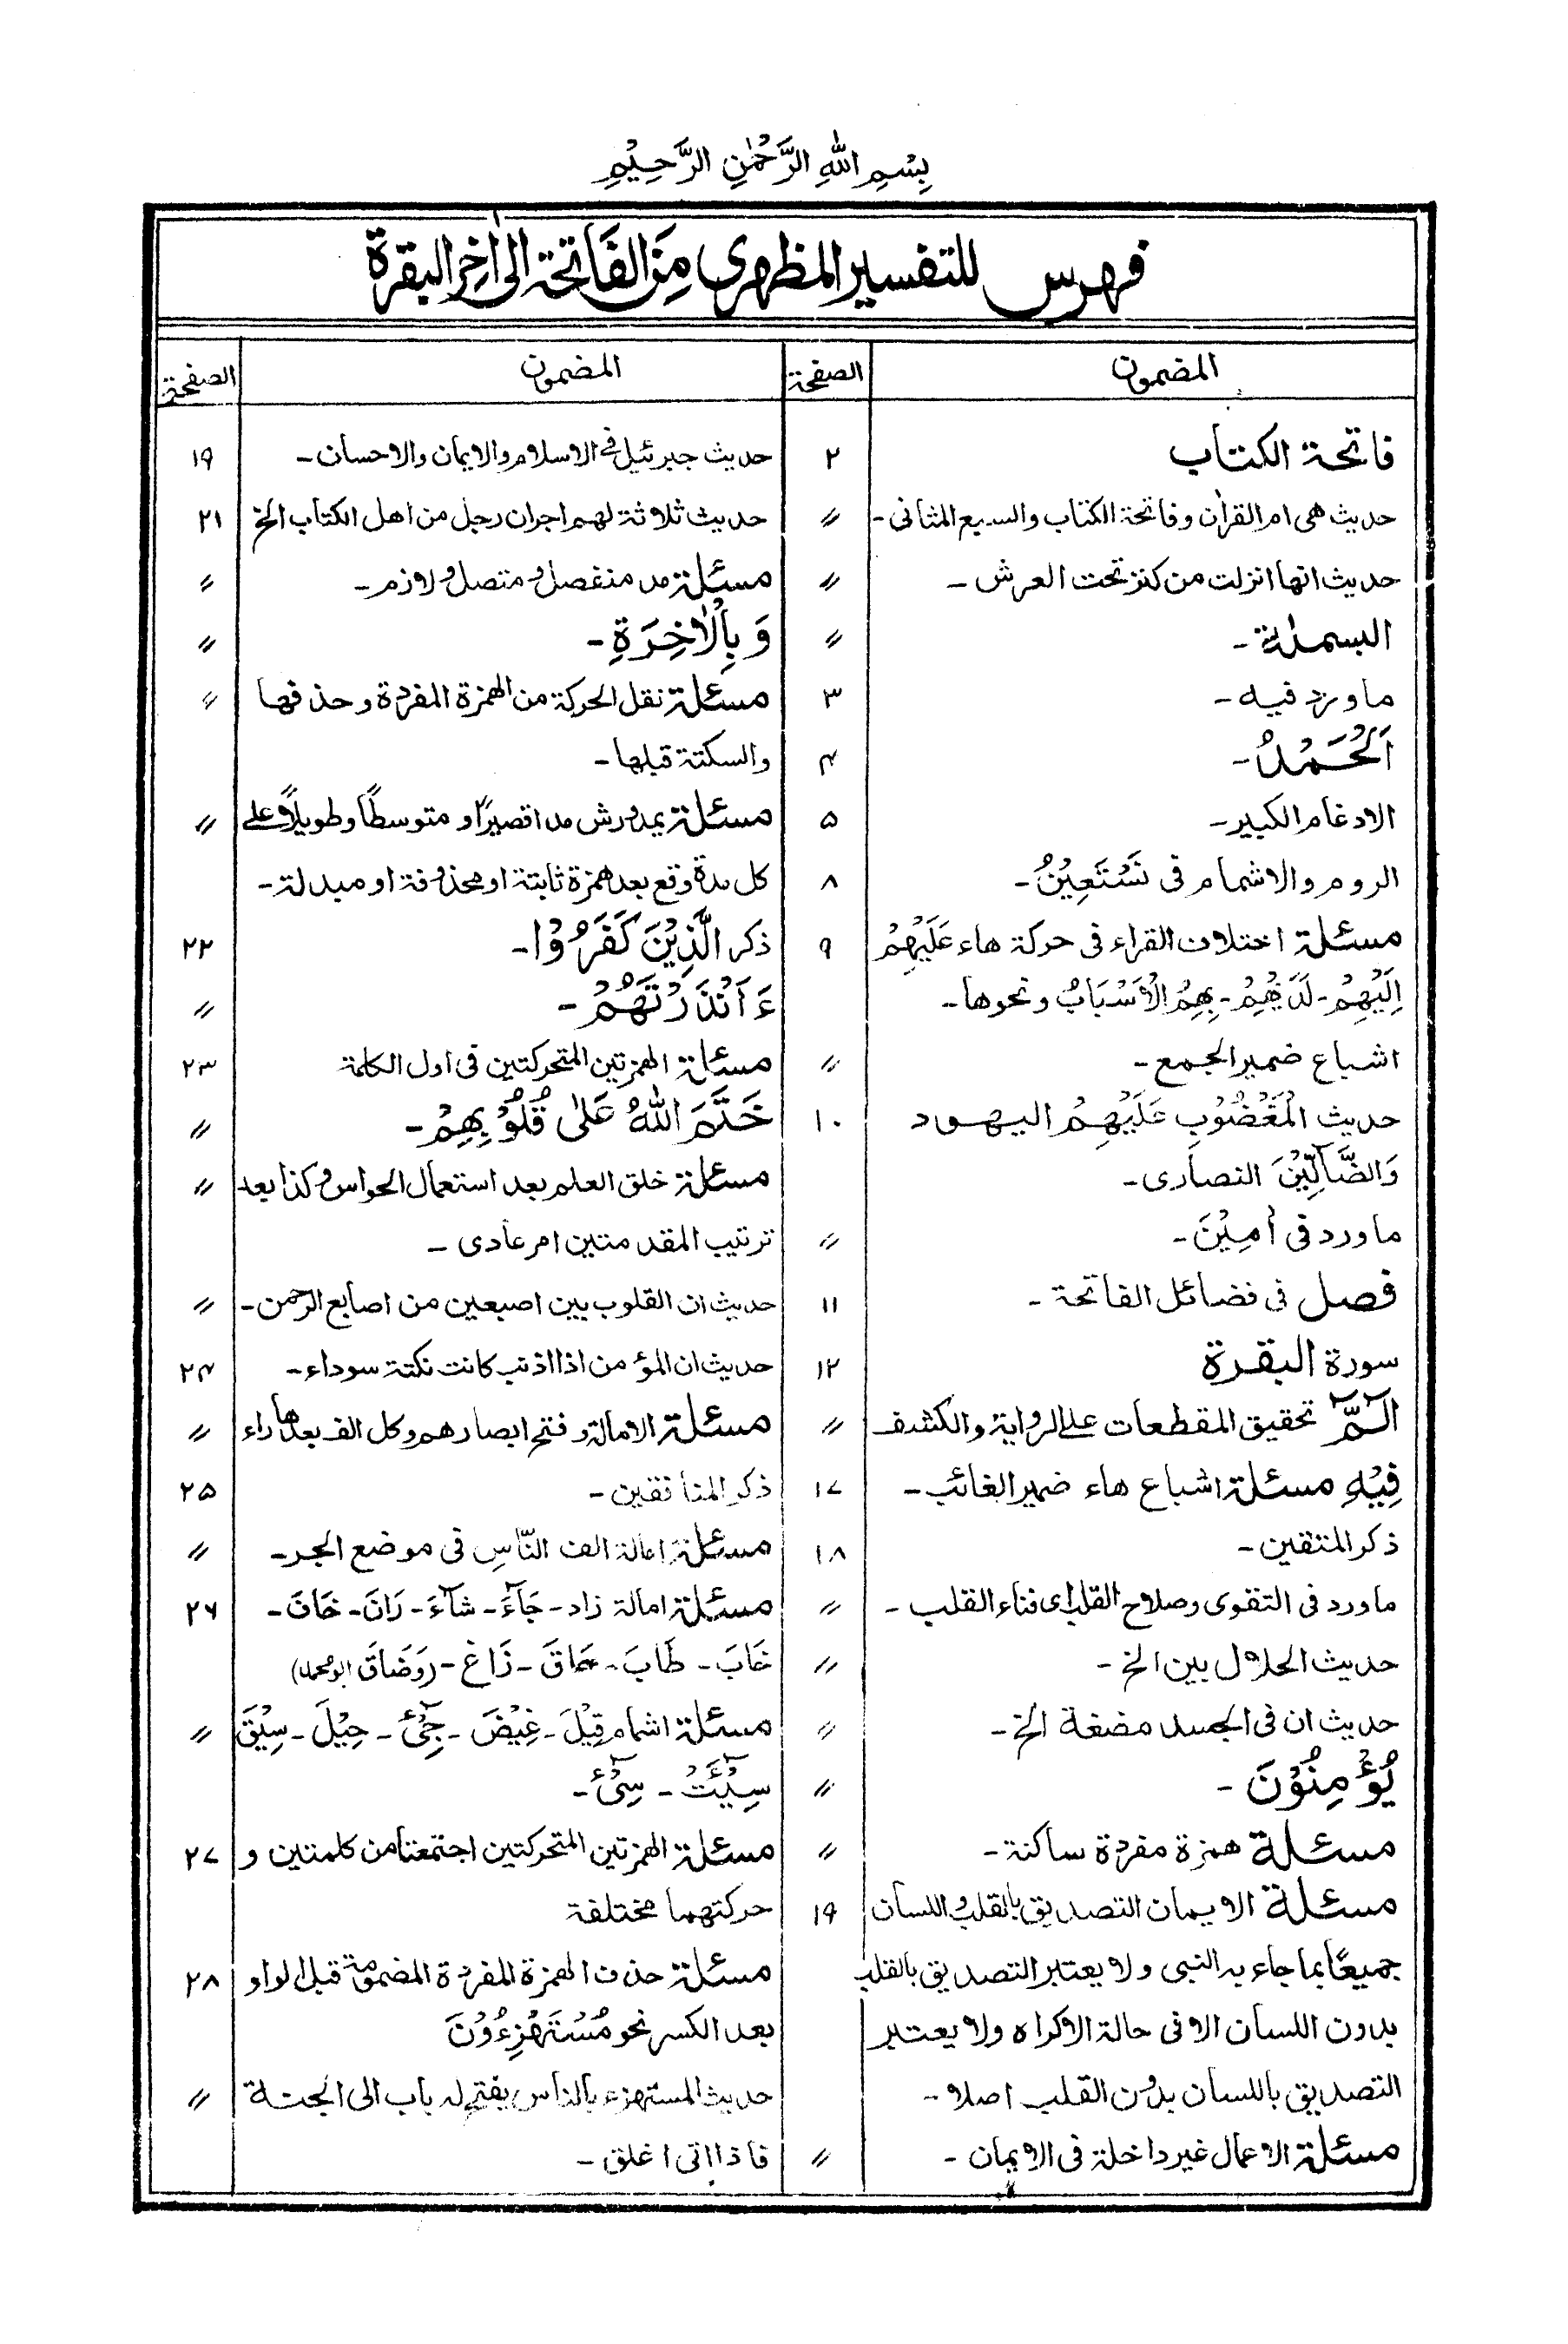 بِسْمِ اللهِ الرَّحْمٰنِ الرَّحِيْمِ
فهرس للتفسير المظهرى مِنَ الفَاتحة الى اٰخِر البقرة
المضمون الصفحة
فاتحة الكتاب ٢
حديث هى ام القراٰن وفاتحة الكتاب والسبع المثانى - 〃
حديث انها انزلت من كنز تحت العرش - 〃
البسملة - 〃
ما ورد فيه - ٣
اَلْحَمْدُ - ۴
الادغام الكبير - ۵
الروم والاشمام فى نَسْتَعِيْنُ - ٨
مسئلة اختلاف القراء فى حركة هاء عَلَيْهِمْ ٩
اِلَيْهِمْ - لَدَيْهِمْ - بِهِمُ الْاَسْبَابُ ونحوها -
اشباع ضمير الجمع - 〃
حديث الْمَغْضُوْبِ عَلَيْهِمْ اليهود ١٠
وَالضَّآلِّيْنَ النصارى -
ما ورد فى اٰمِيْنَ - 〃
فصل فى فضائل الفاتحة - ١١
سورة البقرة ١٢
الٓمّٓ تحقيق المقطعات على الرواية والكشف 〃
فِيْهِ مسئلة اشباع هاء ضمير الغائب - ١٧
ذكر المتقين - ١٨
ما ورد فى التقوى وصلاح القلب اى فناء القلب - 〃
حديث الحلال بين الخ - 〃
حديث ان فى الجسد مضغة الخ - 〃
يُؤْمِنُوْنَ - 〃
مسئلة همزة مفردة ساكنة - 〃
مسئلة الايمان التصديق بالقلب واللسان ١٩
جميعًا بما جاء به النبى ولا يعتبر التصديق بالقلب
بدون اللسان الا فى حالة الاكراه ولا يعتبر
التصديق باللسان بدون القلب اصلا -
مسئلة الاعمال غير داخلة فى الايمان - 〃
المضمون الصفحة
حديث جبرئيل فى الاسلام والايمان والاحسان - ١٩
حديث ثلاثة لهم اجران رجل من اهل الكتاب الخ ٢١
مسئلة مد منفصل و متصل و لازم - 〃
وَ بِالْاٰخِرَةِ - 〃
مسئلة نقل الحركة من الهمزة المفردة وحذفها 〃
والسكتة قبلها -
مسئلة يمد ورش مدا قصيرًا او متوسطًا وطويلًا على 〃
كل مدة وقع بعد همزة ثابتة او محذوفة او مبدلة -
ذكر الَّذِيْنَ كَفَرُوْا - ٢٢
ءَاَنْذَرْتَهُمْ - 〃
مسئلة الهمزتين المتحركتين فى اول الكلمة ٢٣
خَتَمَ اللهُ عَلٰى قُلُوْبِهِمْ - 〃
مسئلة خلق العلم بعد استعمال الحواس وكذا بعد 〃
ترتيب المقدمتين امر عادى -
حديث ان القلوب بين اصبعين من اصابع الرحمن - 〃
حديث ان المؤمن اذا اذنب كانت نكتة سوداء - ٢۴
مسئلة الامالة و فتح ابصارهم وكل الف بعدها راء 〃
ذكر المنافقين - ٢۵
مسئلة امالة الف النَّاسِ فى موضع الجر - 〃
مسئلة امالة زاد - جَآءَ - شَآءَ - رَانَ - خَافَ - ٢۶
خَابَ - طَابَ - حَاقَ - زَاغَ - (وَضَاقَ ابو محمد)
مسئلة اشمام قِيْلَ - غِيْضَ - جِيْٓءَ - حِيْلَ - سِيْقَ 〃
سِيْٓئَتْ - سِيْٓءَ -
مسئلة الهمزتين المتحركتين اجتمعتا من كلمتين و ٢٧
حركتهما مختلفة
مسئلة حذف الهمزة المفردة المضمومة قبل الواو ٢٨
بعد الكسر نحو مُسْتَهْزِءُوْنَ
حديث المستهزء بالناس يفتح له باب الى الجنة 〃
فاذا اتى اغلق -